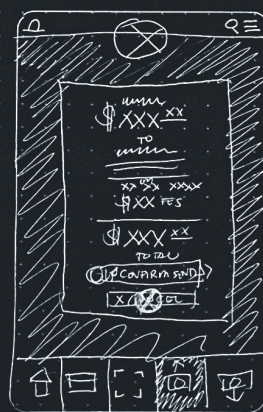 $XXX XX
TO
XX XX XXXX
$XX FES
$XXX XX
TOTAL
CONFIRM SEND